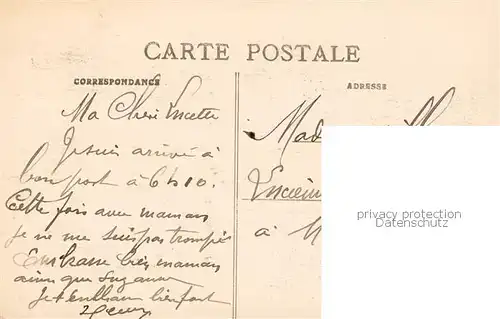 CARTE POSTALE
CORRESPONDANCE
ADRESSE
Ma Chère Lucette
Je suis arrivée à
bon port à 6h10.
Cette fois avec maman
je ne me suis pas trompée
Embrasse bien maman
ainsi que Suzanne
Je t'embrasse bien fort
Mad
à
privacy protection
Datenschutz